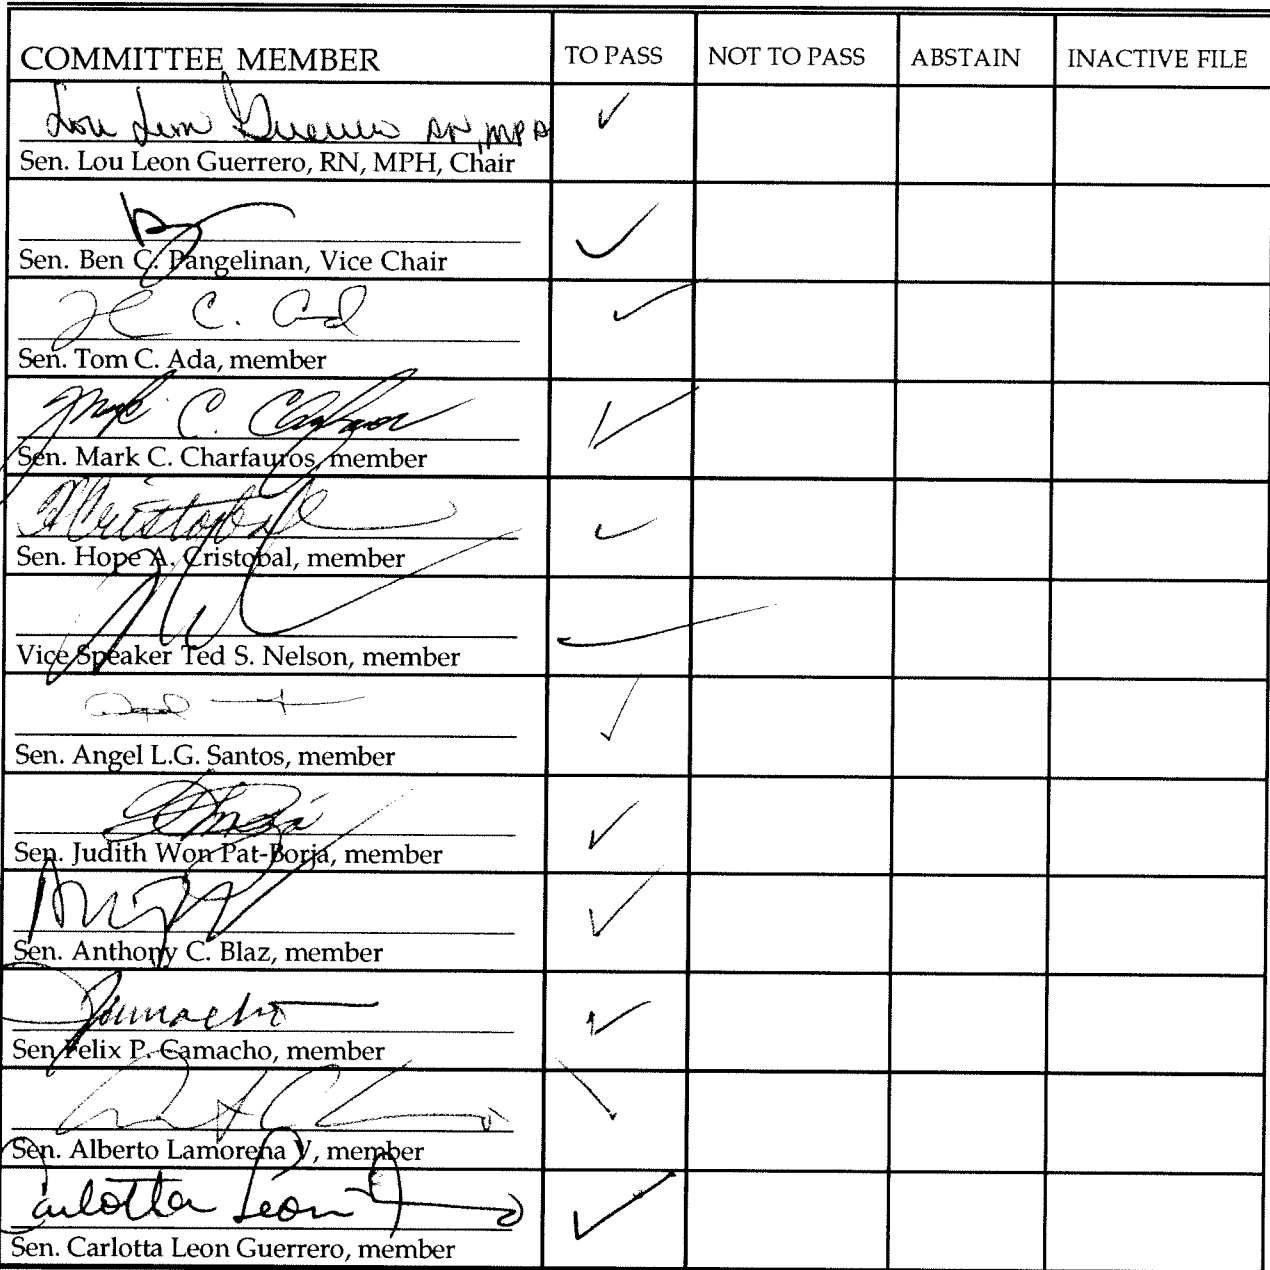 COMMITTEE MEMBER TO PASS NOT TO PASS ABSTAIN INACTIVE FILE
Lou Leon Guerrero RN, MPH
Sen. Lou Leon Guerrero, RN, MPH, Chair
Sen. Ben C. Pangelinan, Vice Chair
C.
Sen. Tom C. Ada, member
Mark C. Charfauros
Sen. Mark C. Charfauros, member
HCristobal
Sen. Hope A. Cristobal, member
Vice Speaker Ted S. Nelson, member
Sen. Angel L.G. Santos, member
Sen. Judith Won Pat-Borja, member
Sen. Anthony C. Blaz, member
Camacho
Sen Felix P. Camacho, member
Sen. Alberto Lamorena V, member
Carlotta Leon
Sen. Carlotta Leon Guerrero, member